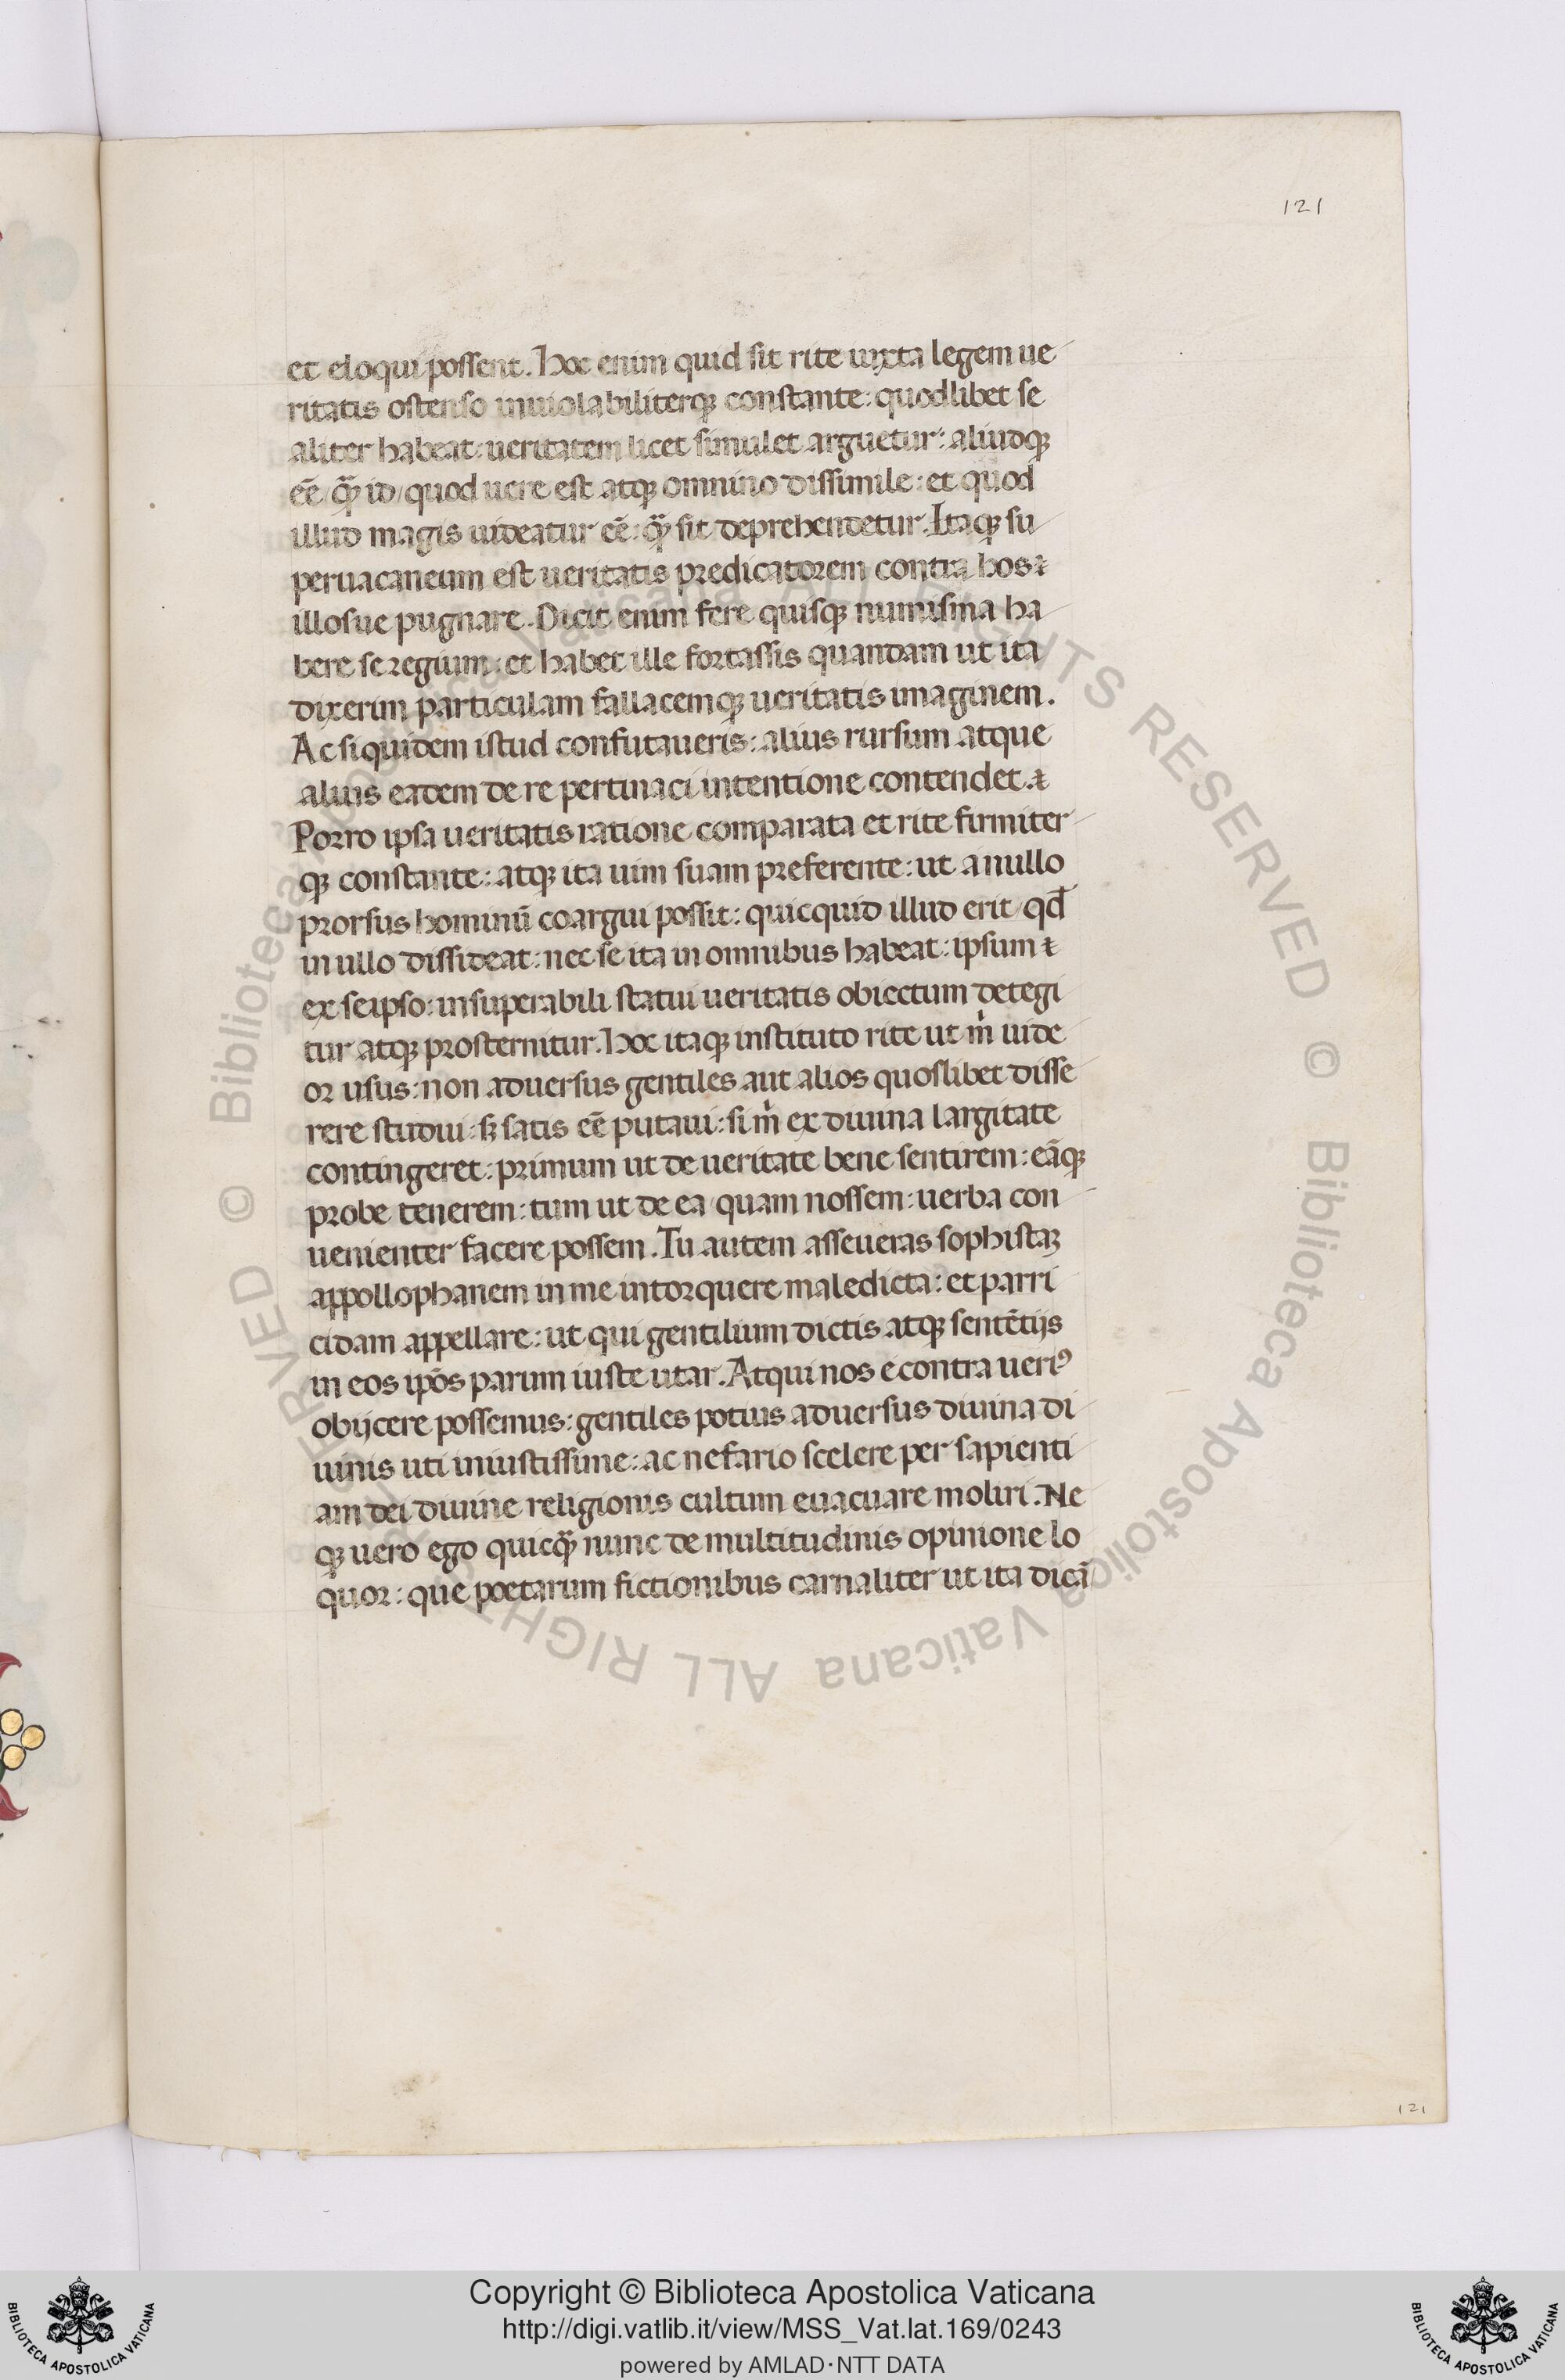 121
et eloqui possent. Hoc enim quid sit rite iuxta legem ue
ritatis ostenso inuiolabiliterq; constante: quodlibet se
aliter habeat: ueritatem licet simulet arguetur: aliudq;
eē q̄ꝫ id quod uere est atq; omnino dissimile: et quod
illud magis uideatur eē: q̄ꝫ sit deprehendetur. Itaq; su
peruacaneum est ueritatis predicatorem contra hos
illosue pugnare. Dicit enim fere quisq; numisma ha
bere se regium: et habet ille fortassis quandam ut ita
dixerim particulam fallacemq; ueritatis imaginem.
Ac si quidem istud confutaueris: alius rursum atque
alius eadem de re pertinaci intentione contendet.
Porro ipsa ueritatis ratione comparata et rite firmiter
q; constante: atq; ita uim suam preferente: ut a nullo
prorsus hominū coargui possit: quicquid illud erit qđ
in ullo dissideat: nec se ita in omnibus habeat: ipsum
ex seipso: insuperabili statui ueritatis obiectum detegi
tur atq; prosternitur. Hoc itaq; instituto rite ut m̊ uide
or usus: non aduersus gentiles aut alios quoslibet disse
rere studui: sꝫ satis eē putaui: si m̊ ex diuina largitate
contingeret: primum ut de ueritate bene sentirem: eāq;
probe tenerem: tum ut de ea quam nossem: uerba con
uenienter facere possem. Tu autem asseueras sophistaꝫ
appollophanem in me intorquere maledicta: et parri
cidam appellare: ut qui gentilium dictis atq; sentētijs
in eos ipōs parum iuste utar. Atqui nos e contra ueriꝰ
obijcere possemus: gentiles potius aduersus diuina di
uinis uti iniustissime: ac nefario scelere per sapienti
am dei diuine religionis cultum euacuare moliri. Ne
q; uero ego quicq̄ꝫ nunc de multitudinis opinione lo
quor: que poetarum fictionibus carnaliter ut ita dicā
121
© Biblioteca Apostolica Vaticana ALL RIGHTS RESERVED © Biblioteca Apostolica Vaticana ALL RIGHTS RESERVED
Copyright © Biblioteca Apostolica Vaticana
http://digi.vatlib.it/view/MSS_Vat.lat.169/0243
powered by AMLAD·NTT DATA
BIBLIOTECA APOSTOLICA VATICANA
BIBLIOTECA APOSTOLICA VATICANA